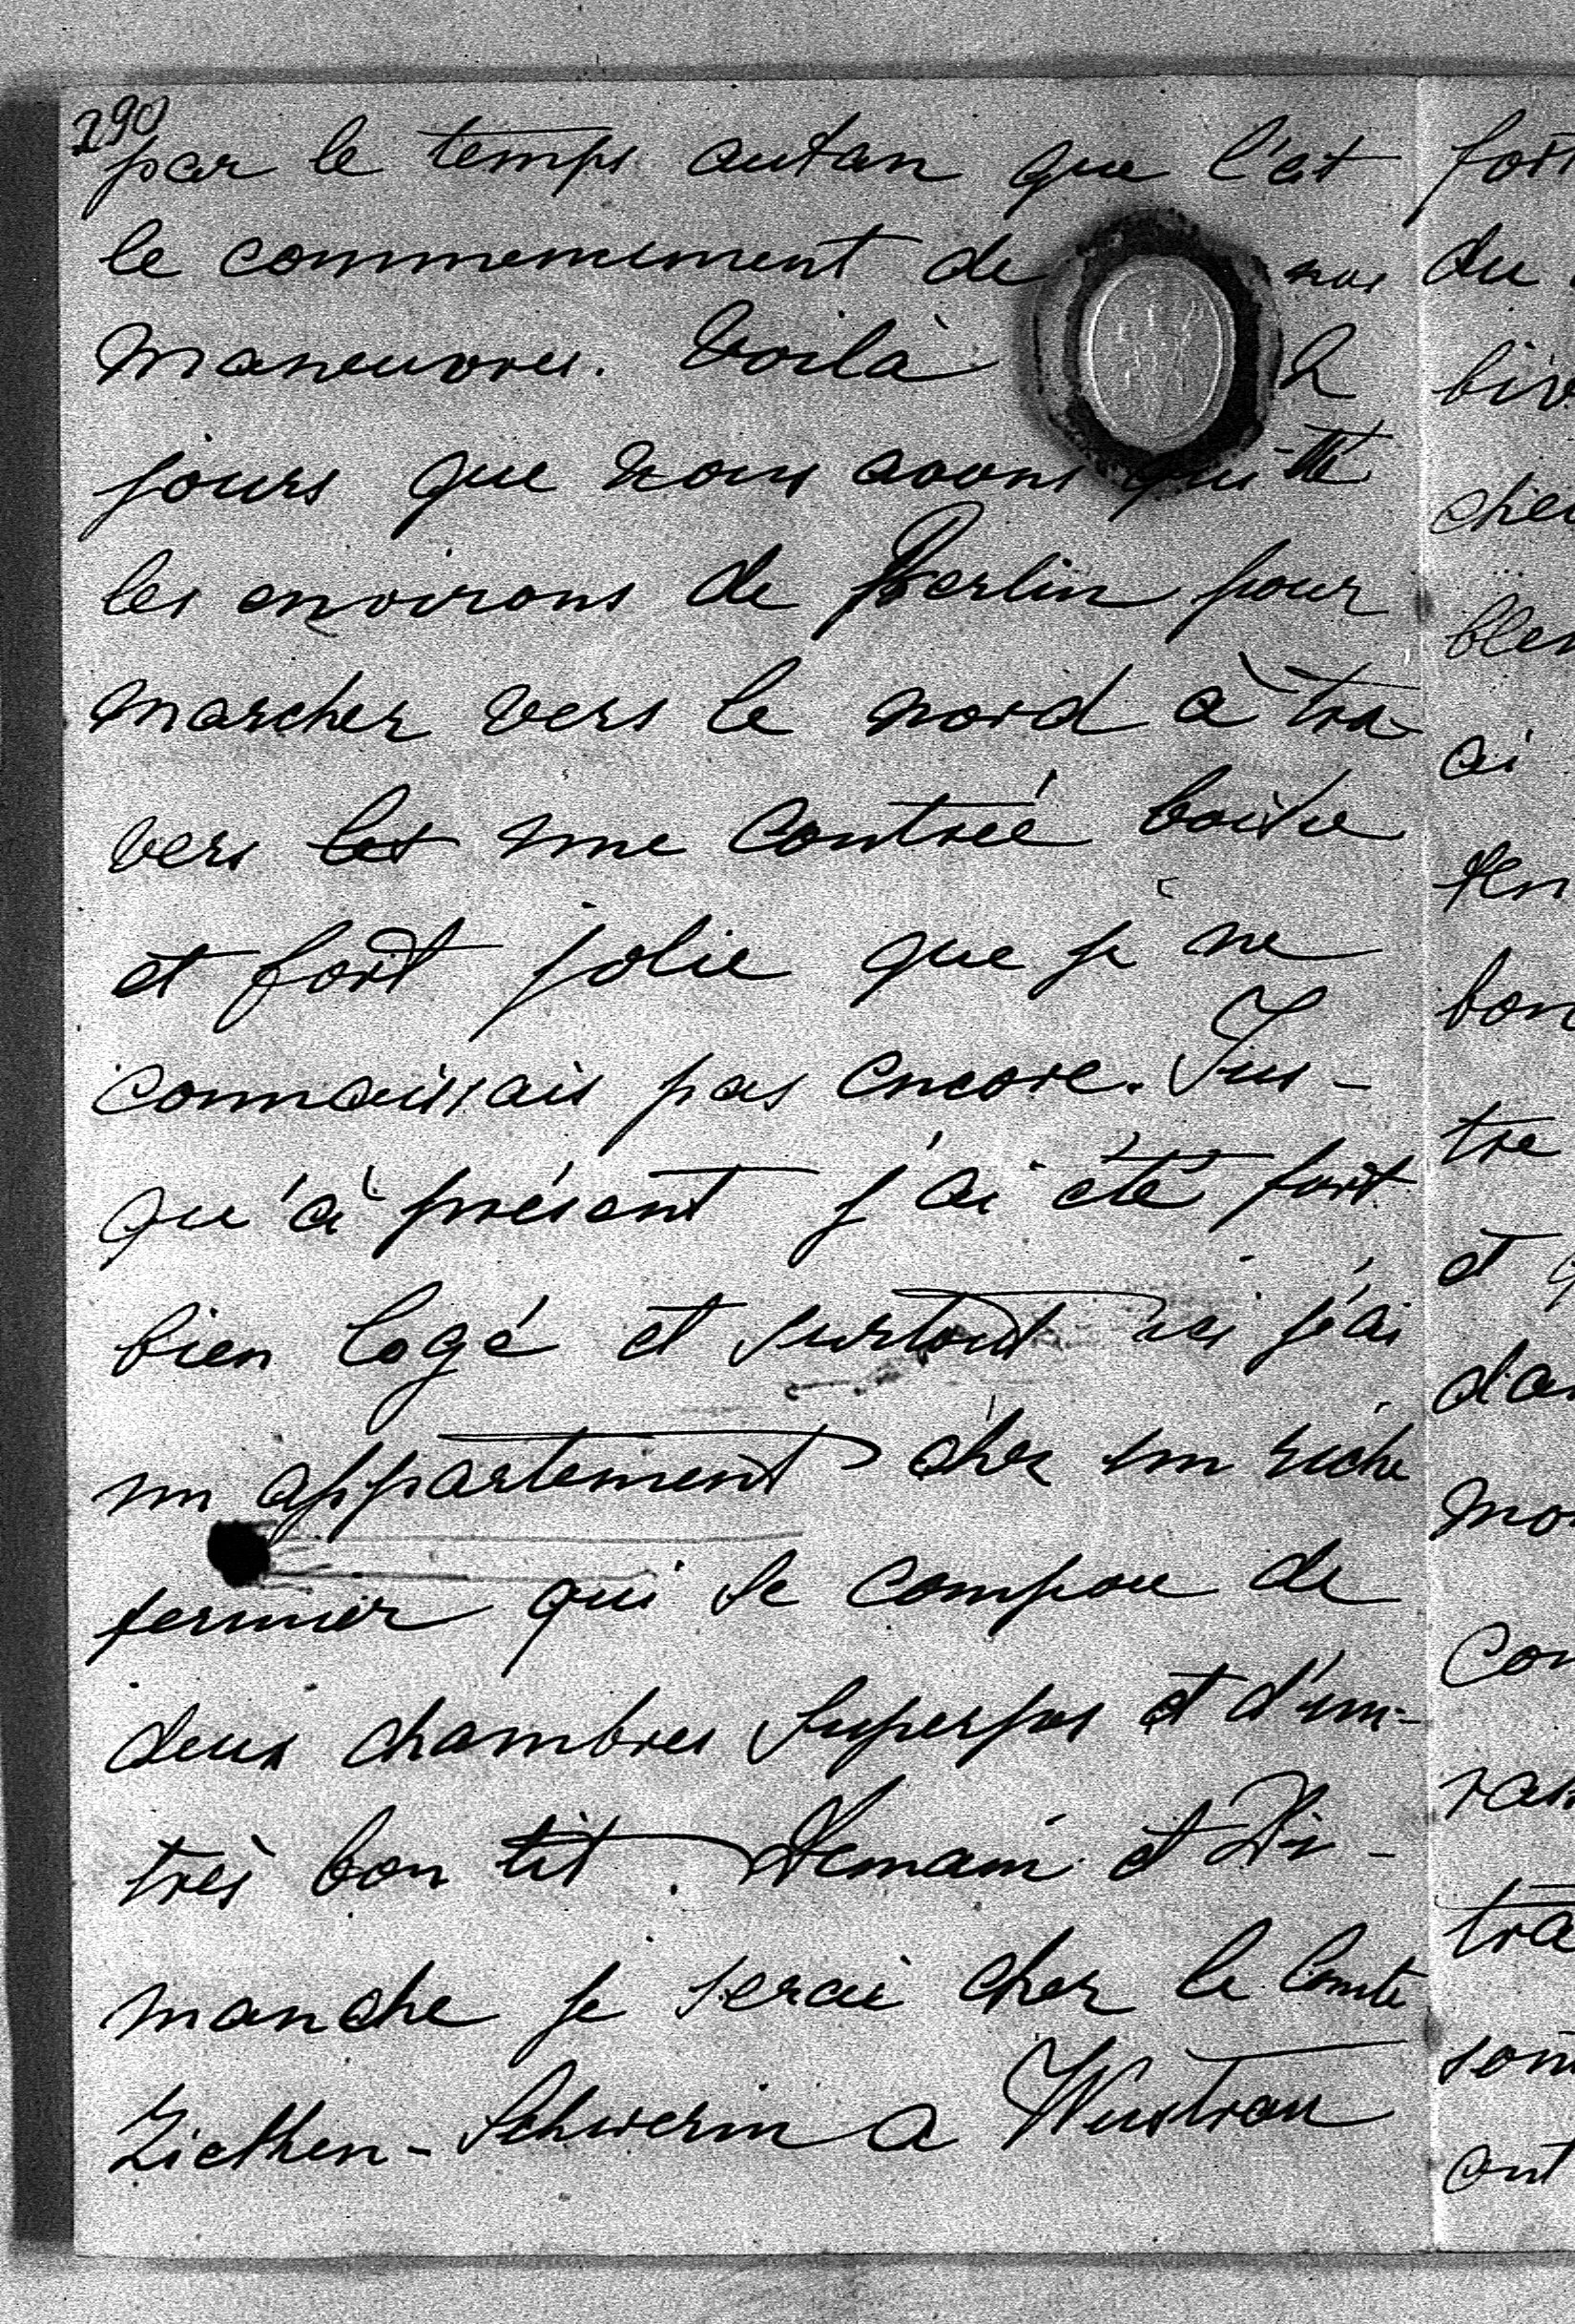 290
par le temps autan que l'est
le commencement de nos
maneuvres. Voilà 2
jours que nous avons quitté
les environs de Berlin pour
marcher vers le nord à tra-
vers les une contrée boisée
et fort jolie que je ne
connaissais pas encore. Jus-
qu'à présent j'ai été fort
bien logé et surtout ici j'ai
un appartement chez un riche
fermier qui se compose de
deux chambres superpos et d'un
très bon lit. Demain et Di-
manche je serai chez le Comte
Ziethen-Schwerin a Wustrau
fort
du
biv
che
blen
ai
ten
bon
tre
et
dan
mon
con
rass
tra
son
ont